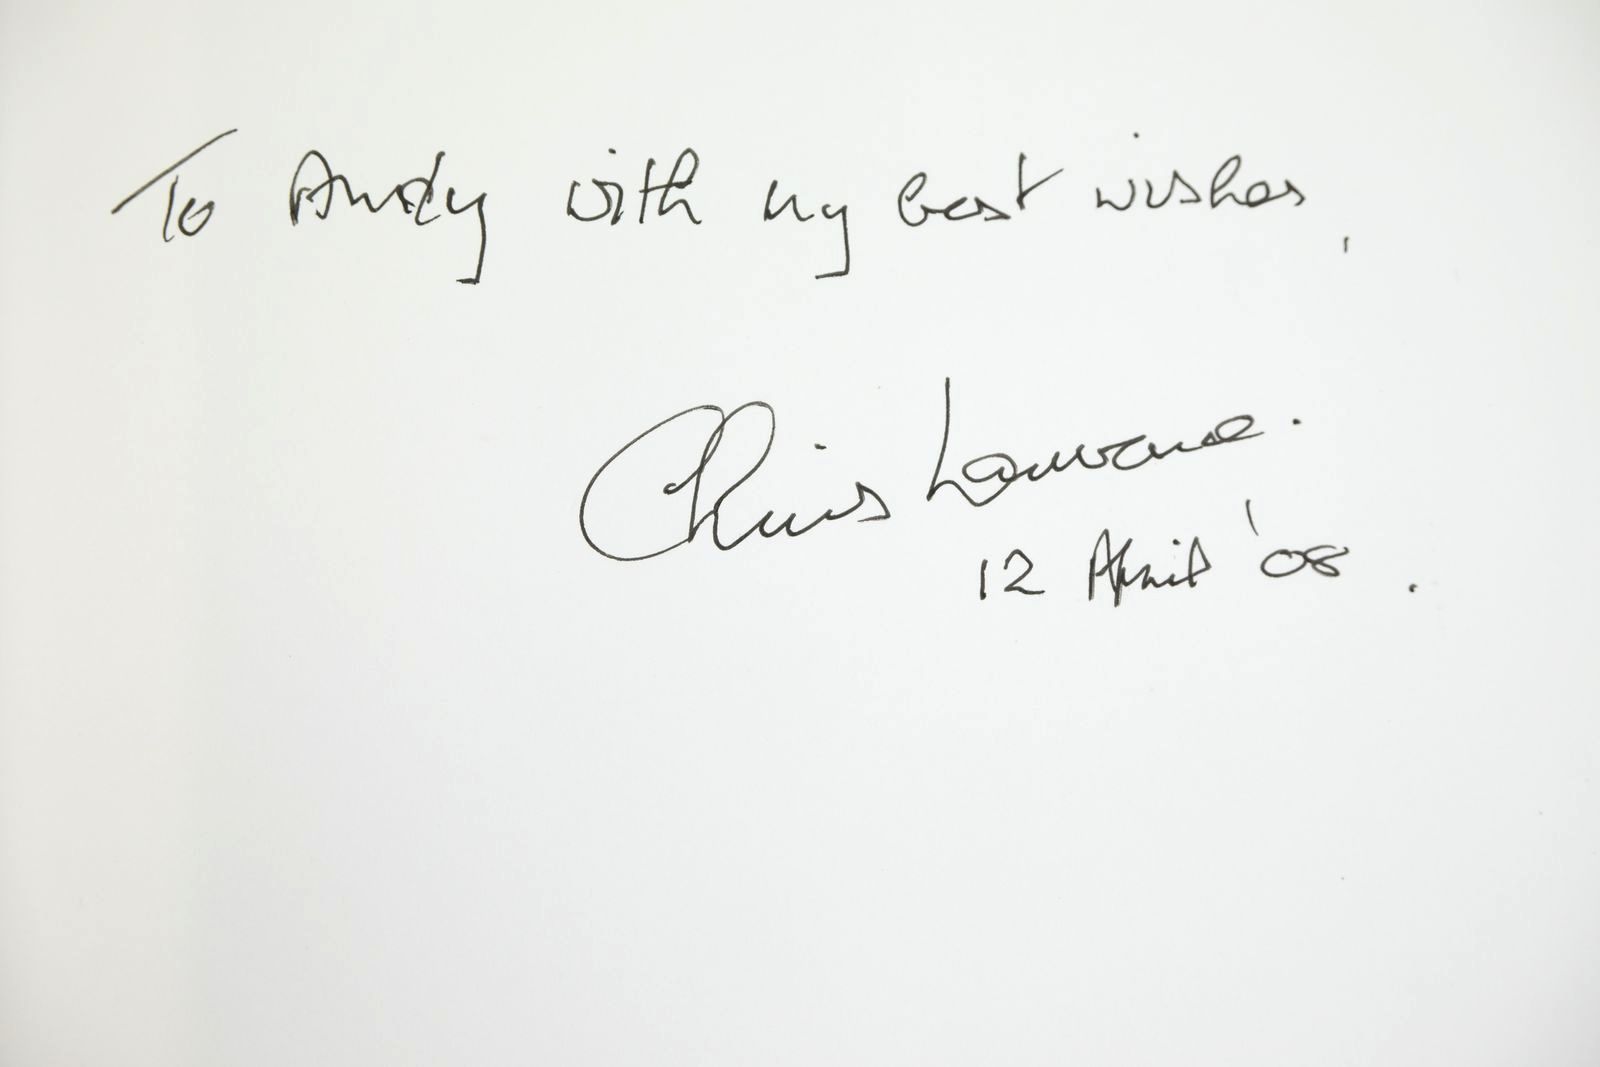 To Andy with my best wishes,
Chris Lawrence.
12 April '08.